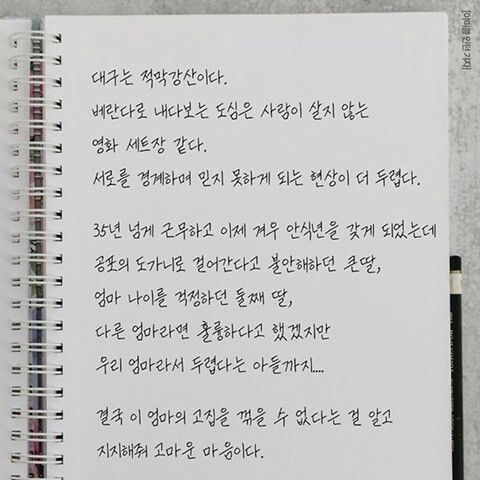 대구는 적막강산이다.
베란다로 내다보는 도심은 사람이 살지 않는
영화 세트장 같다.
서로를 경계하며 믿지 못하게 되는 현상이 더 두렵다.
35년 넘게 근무하고 이제 겨우 안식년을 갖게 되었는데
공포의 도가니로 걸어간다고 불안해하던 큰딸,
엄마 나이를 걱정하던 둘째 딸,
다른 엄마라면 훌륭하다고 했겠지만
우리 엄마라서 두렵다는 아들까지...
결국 이 엄마의 고집을 꺾을 수 없다는 걸 알고
지지해줘 고마운 마음이다.